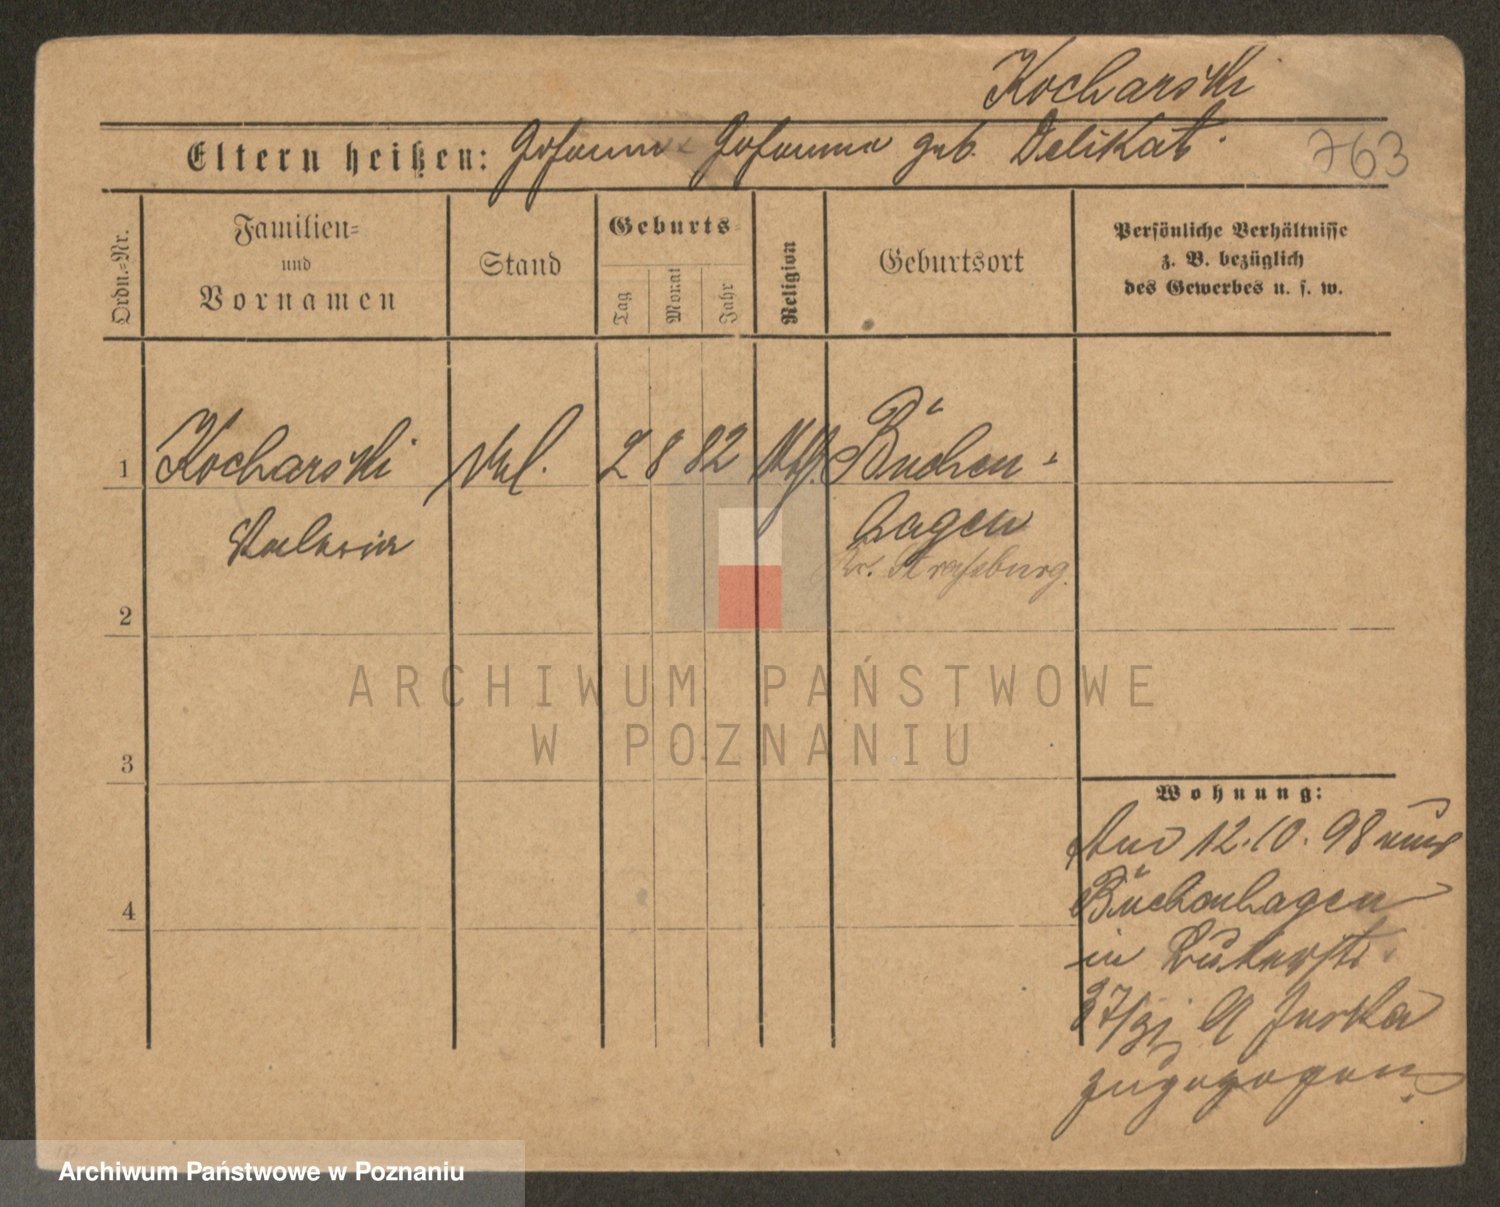 Kocharski
Eltern heißen: Johann Johanna geb. Delikat.
763
Ordn.=Nr.
Familien=
und
Vornamen
Stand
Geburts
Tag
Monat
Jahr
Religion
Geburtsort
Persönliche Verhältnisse
z. B. bezüglich
des Gewerbes u. s. w.
1 Kocharski 2 8 82 Büchen-
Valeria hagen
Kr. Straßburg.
2
3
4
ARCHIWUM PAŃSTWOWE
W POZNANIU
Wohnung:
Am 12.10.98 aus
Büchenhagen
in
37/
zugezogen.
Archiwum Państwowe w Poznaniu